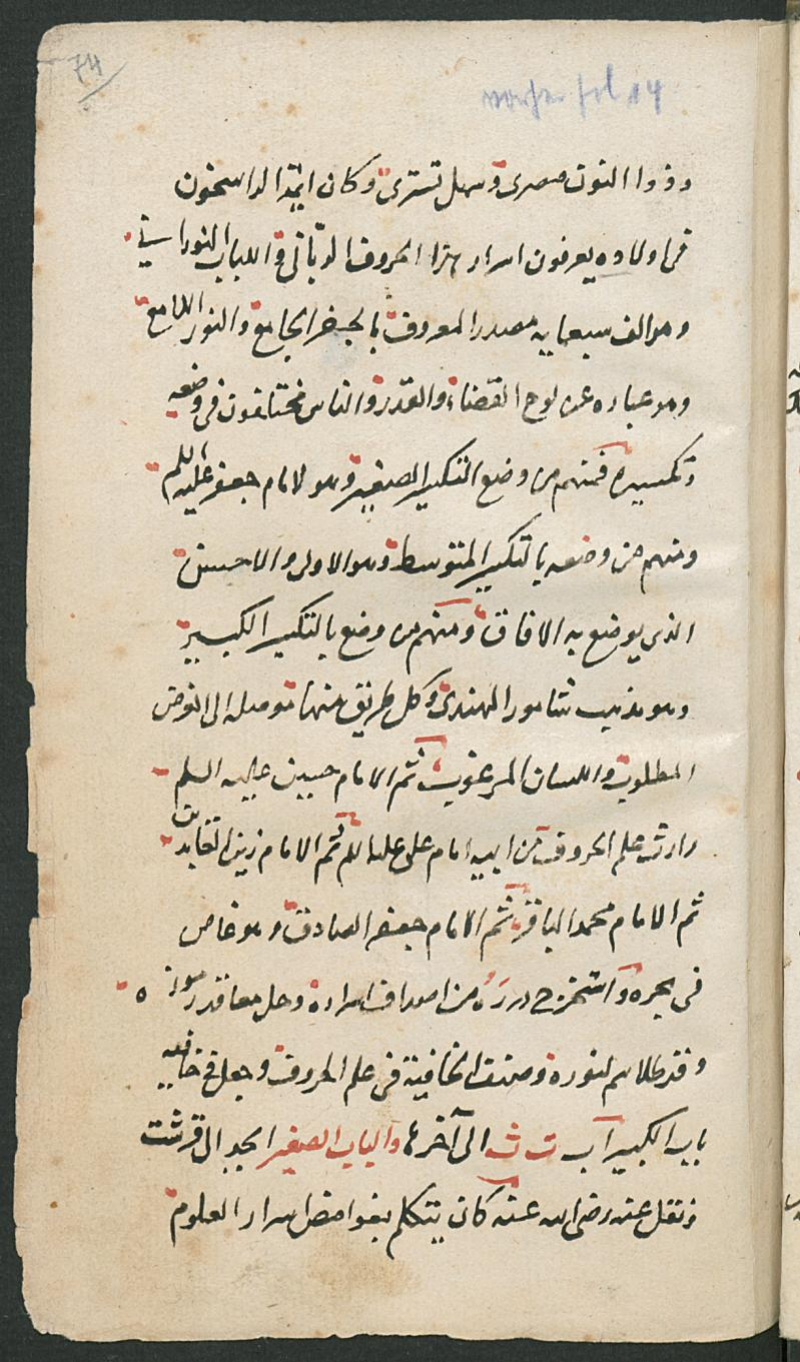 74
vorher fol 14
وذوا النون مصرى وسهل تسترى وكان ائمة الراسخون
من اولاده يعرفون اسرار هذا الحروف الربانى واللباب النورانى
وهو الف سبعمايه مصدر المعروف بالجفر الجامع والنور اللامع
وهو عباره عن لوح القضاء والقدر والناس مختلفون فى وضعه
وتكسيره فمنهم من وضع التكسير الصغير وهو لامام جعفر عليه السلم
ومنهم من وضعه بالتكسير المتوسط وهو الاولى والاحسن
الذى يوضع به الافاق ومنهم من وضع بالتكسير الكبير
وهو مذهب الهندى وكل طريق منها توصله الى الغرض
المطلوب واللسان المرغوب ثم الامام حسين عليه السلم
وارث علم الحروف من ابيه امام على عليه السلم ثم الامام زين العابدين
ثم الامام محمد الباقر ثم الامام جعفر الصادق وهو غاص
فى بحره واستخرج درره من اصداف اسراره وحل معاقد رموزه
وفك طلاسم كنوزه وصنف الخافية فى علم الحروف وجعل فى خافيه
باب الكبير اب ت ث الى آخرها والباب الصغير ابجد الى قرشت
ونقل عنه رضى الله عنه كان يتكلم بغوامض اسرار العلوم